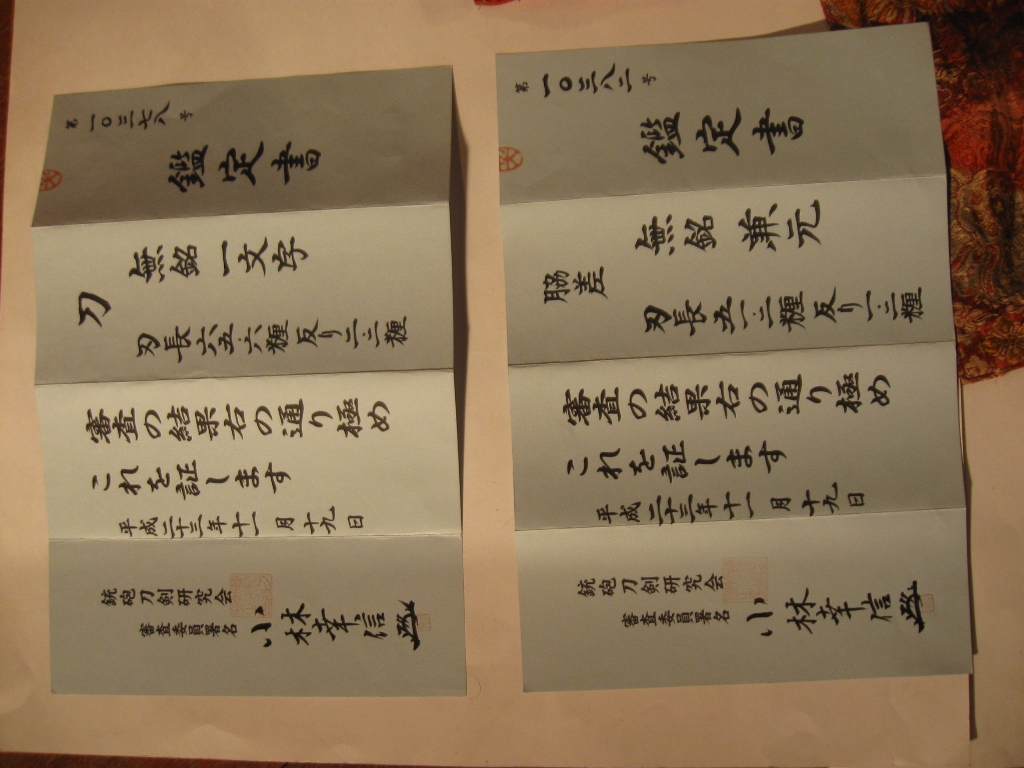 第一〇三七八号
鑑定書
刀
無銘 一文字
刃長六五・六糎 反り二・二糎
審査の結果右の通り極め
これを証します
平成二十三年十一月十九日
銃砲刀剣研究会
審査委員署名
小林幸信
第一〇三八二号
鑑定書
脇差
無銘 兼元
刃長五一・二糎 反り一・二糎
審査の結果右の通り極め
これを証します
平成二十三年十一月十九日
銃砲刀剣研究会
審査委員署名
小林幸信